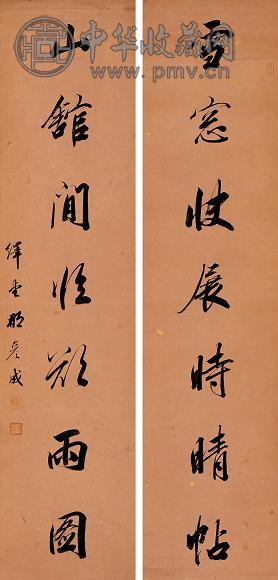 中华收藏网
www.pmv.cn
雪窓快展時晴帖
山舘閒臨欲雨圖
繹堂那彥成